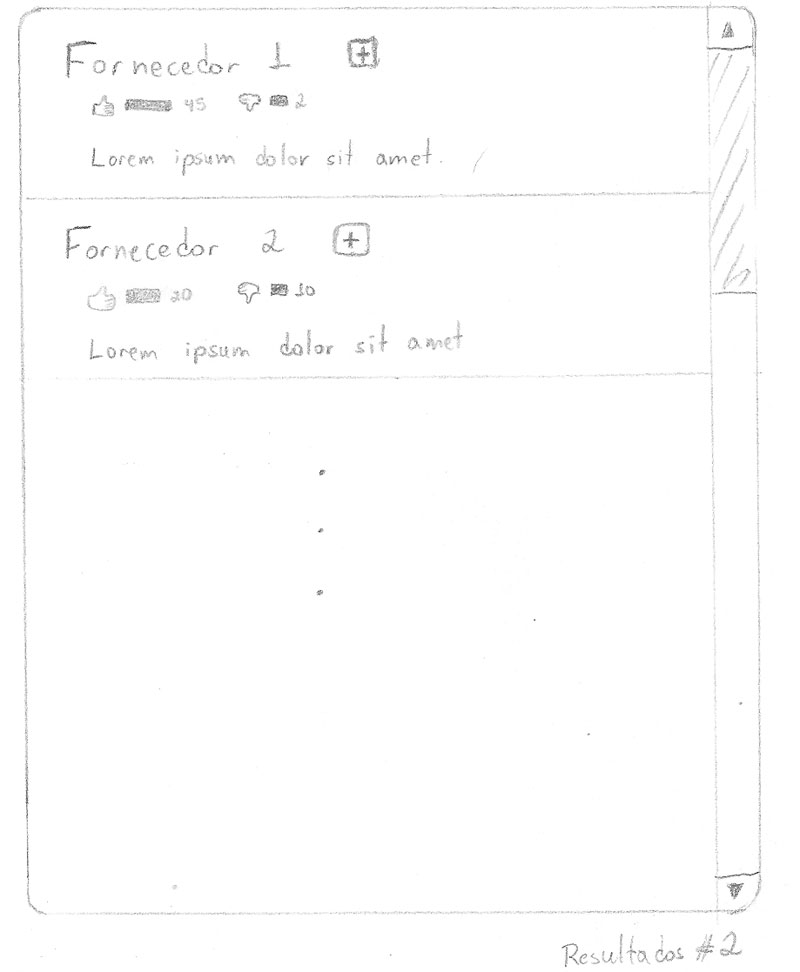 Fornecedor 1 +
45 2
Lorem ipsum dolor sit amet.
Fornecedor 2 +
20 10
Lorem ipsum dolor sit amet
Resultados #2